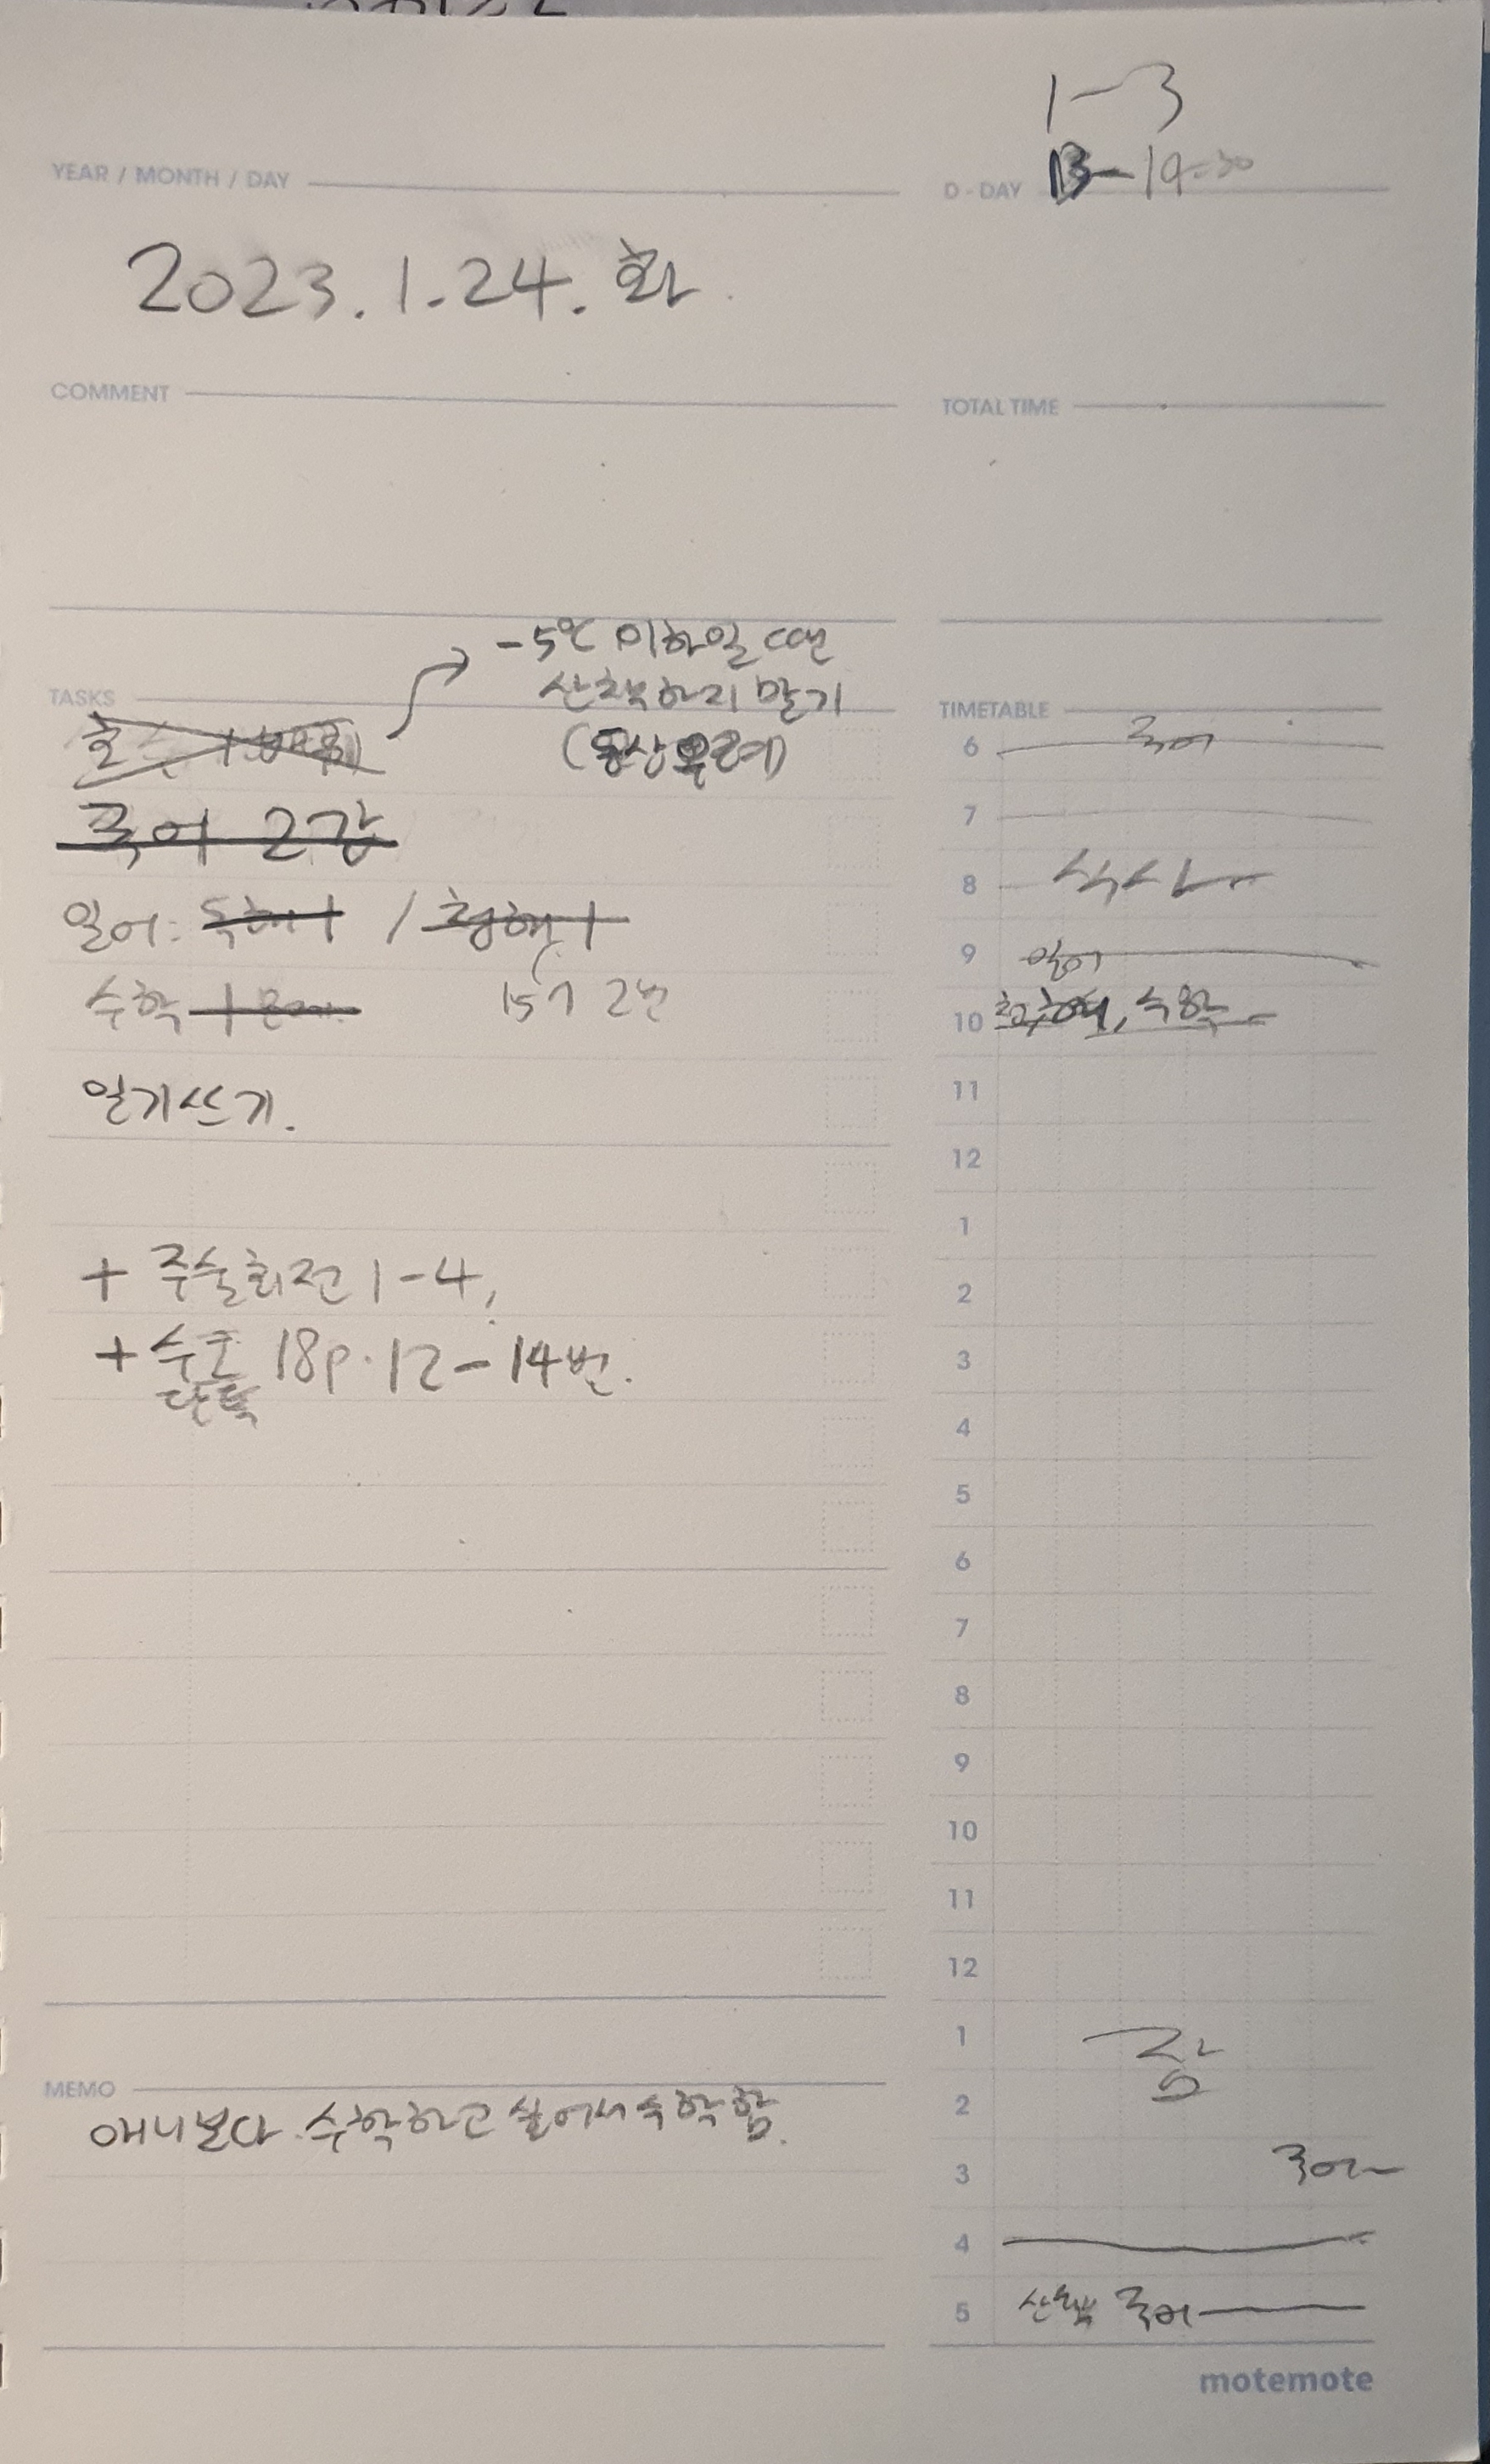 1-3
YEAR / MONTH / DAY
D-DAY 13-19:30
2023.1.24.화
COMMENT
TOTAL TIME
-5℃ 이하일 때는
산책하지 말기
(동상 우려)
TASKS
국어 2강
일어: 독해 1 / 청해 1
수학 1문제
15기 2번
일기쓰기.
+ 주술회전 1-4,
+ 수학 18p. 12-14번.
MEMO
애니보다 수학하고 싶어서 수학함.
TIMETABLE
6 국어
7
8 식사
9 일어
10 청해, 수학
11
12
1
2
3
4
5
6
7
8
9
10
11
12
1 잠
2
3 국어
4
5 산책 국어
motemote